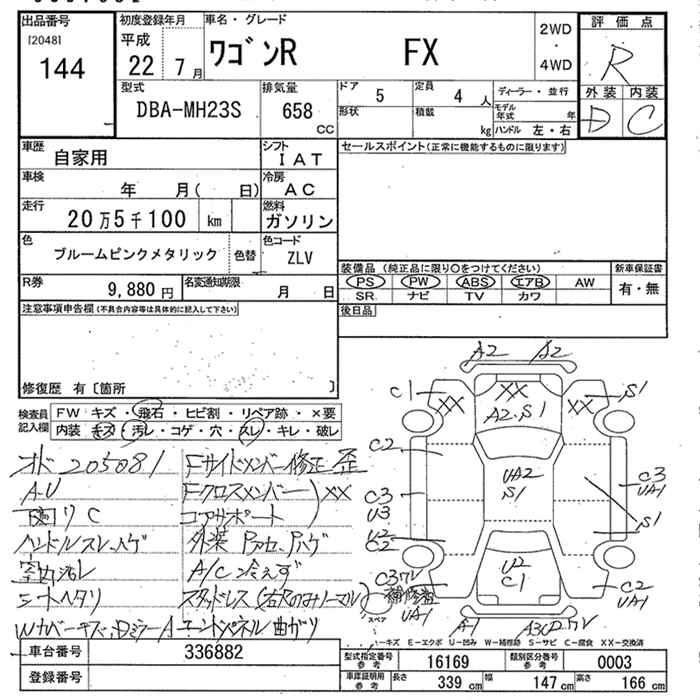 出品番号
[2048]
144
初度登録年月
平成
22 7月
車名・グレード
ワゴンR FX
2WD
・
4WD
評価点
R
外装 内装
D C
型式
DBA-MH23S
排気量
658
cc
ドア
5
定員
4 人
形状
積載
kg
ディーラー・並行
モデル
年式 年
ハンドル 左・右
車歴
自家用
シフト
IAT
車検
年 月( 日)
冷房
AC
走行
20万5千100 km
燃料
ガソリン
色
ブルームピンクメタリック
色替
色コード
ZLV
R券
9,880円
名変通知期限
月 日
セールスポイント(正常に機能するものに限ります)
装備品(純正品に限り○をつけてください)
PS PW ABS エアB AW
SR ナビ TV カワ
新車保証書
有・無
後日品
注意事項申告欄(不具合内容等は具体的に記入して下さい)
修復歴 有〔箇所 〕
検査員
記入欄
FW キズ・飛石・ヒビ割・リペア跡・×要
内装 キズ・汚レ・コゲ・穴・スレ・キレ・破レ
オド 205081
A-U
下廻り C
ハンドルスレ、ハゲ
室内汚レ
シートヘタリ
Wカバーキズ、Dミラー A
Fサイドメンバー修正 歪
Fクロスメンバー
コアサポート
XX
外装
A/C 冷えず
スタッドレス(右Rのみノーマル)
エンドパネル曲がり
A2 A2
C1 XX
XX
A2・S1
XX S1
C2
C3
U3
U2
C2
UA2
S1
C3
UA1
S1
U2
C1
C2
UA1
補修
UA1
スペア
A1
・・キズ E-エクボ U-凹み W-補修跡 S-サビ C-腐食 XX-交換済
車台番号
336882
登録番号
型式指定番号
参考
16169
類別区分番号
参考
0003
車庫証明用
参考
長さ
339 cm
幅
147 cm
高さ
166 cm